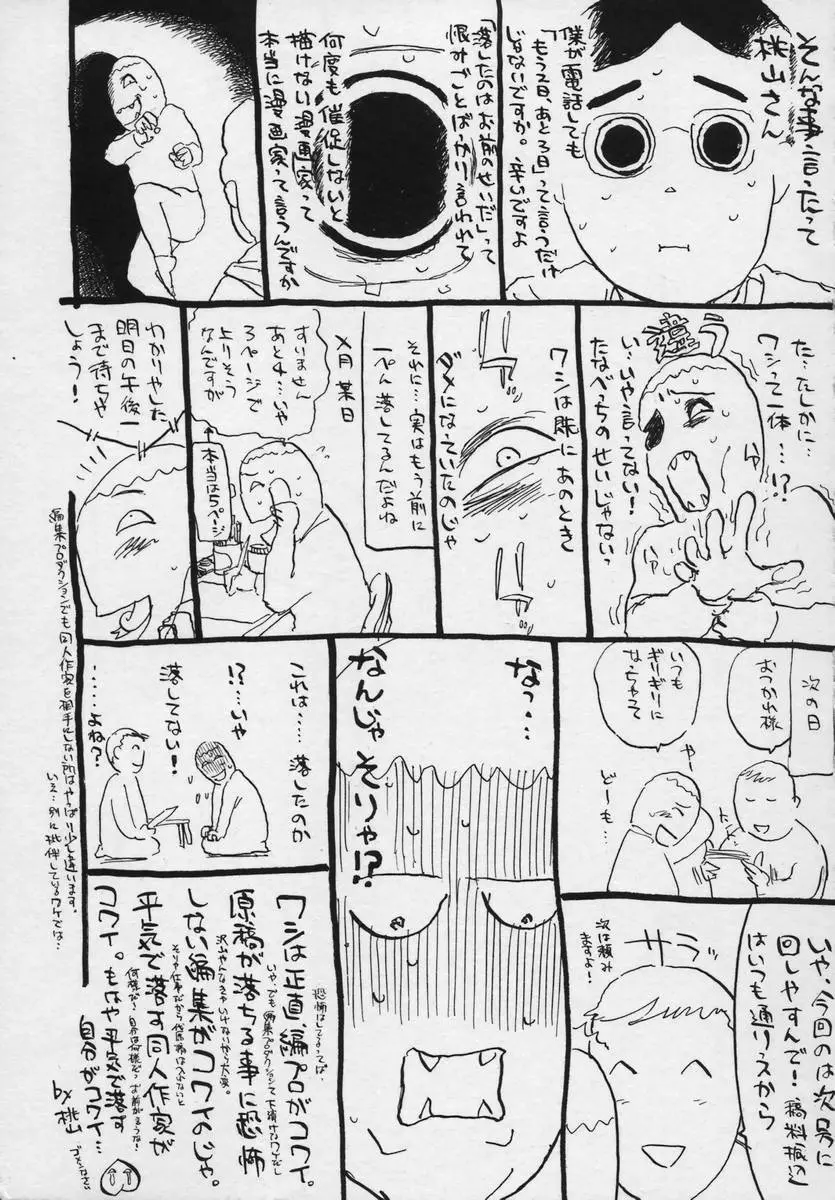 そんな事言ったって
桃山さん
僕が電話しても
「もう2日、あと3日」って言うだけ
じゃないですか。辛いですよ
「落したのはお前のせいだ」って
恨みごとばっかり言われて
何度も催促しないと
描けない漫画家って
本当に漫画家って言うんですか
違う
た…たしかに…
ワシって一体…!?
い…いや言ってない!
たなべっちのせいじゃないっ
ワシは既にあのとき
ダメになっていたのじゃ
それに…実はもう前に
一ぺん落してるんだよね
×月某日
すいません
あと4…いや
3ページで
上りそう
なんですが
↑本当は5ページ
わかりやした
明日の午後一
まで待ちや
しょう!
次の日
おつかれ様
いつも
ギリギリに
なっちゃって
やー
どーも…
いや、今回のは次号に
回しやすんで!稿料振込
はいつも通りっスから
サラッ
次は頼み
ますよ!
なっ…
なんじゃそりゃ!?
これは……落したのか
!?……いや
落してない!
……よね?
ワシは正直、編プロがコワイ。
原稿が落ちる事に恐怖
しない編集がコワイのじゃ。
平気で落す同人作家が
コワイ。もはや平気で落す
自分がコワイ…
by桃山
ゴメンなさい
編集プロダクションでも同人作家を相手にしない所はやっぱり少し違います。
いえ…別に批判しているワケでは…